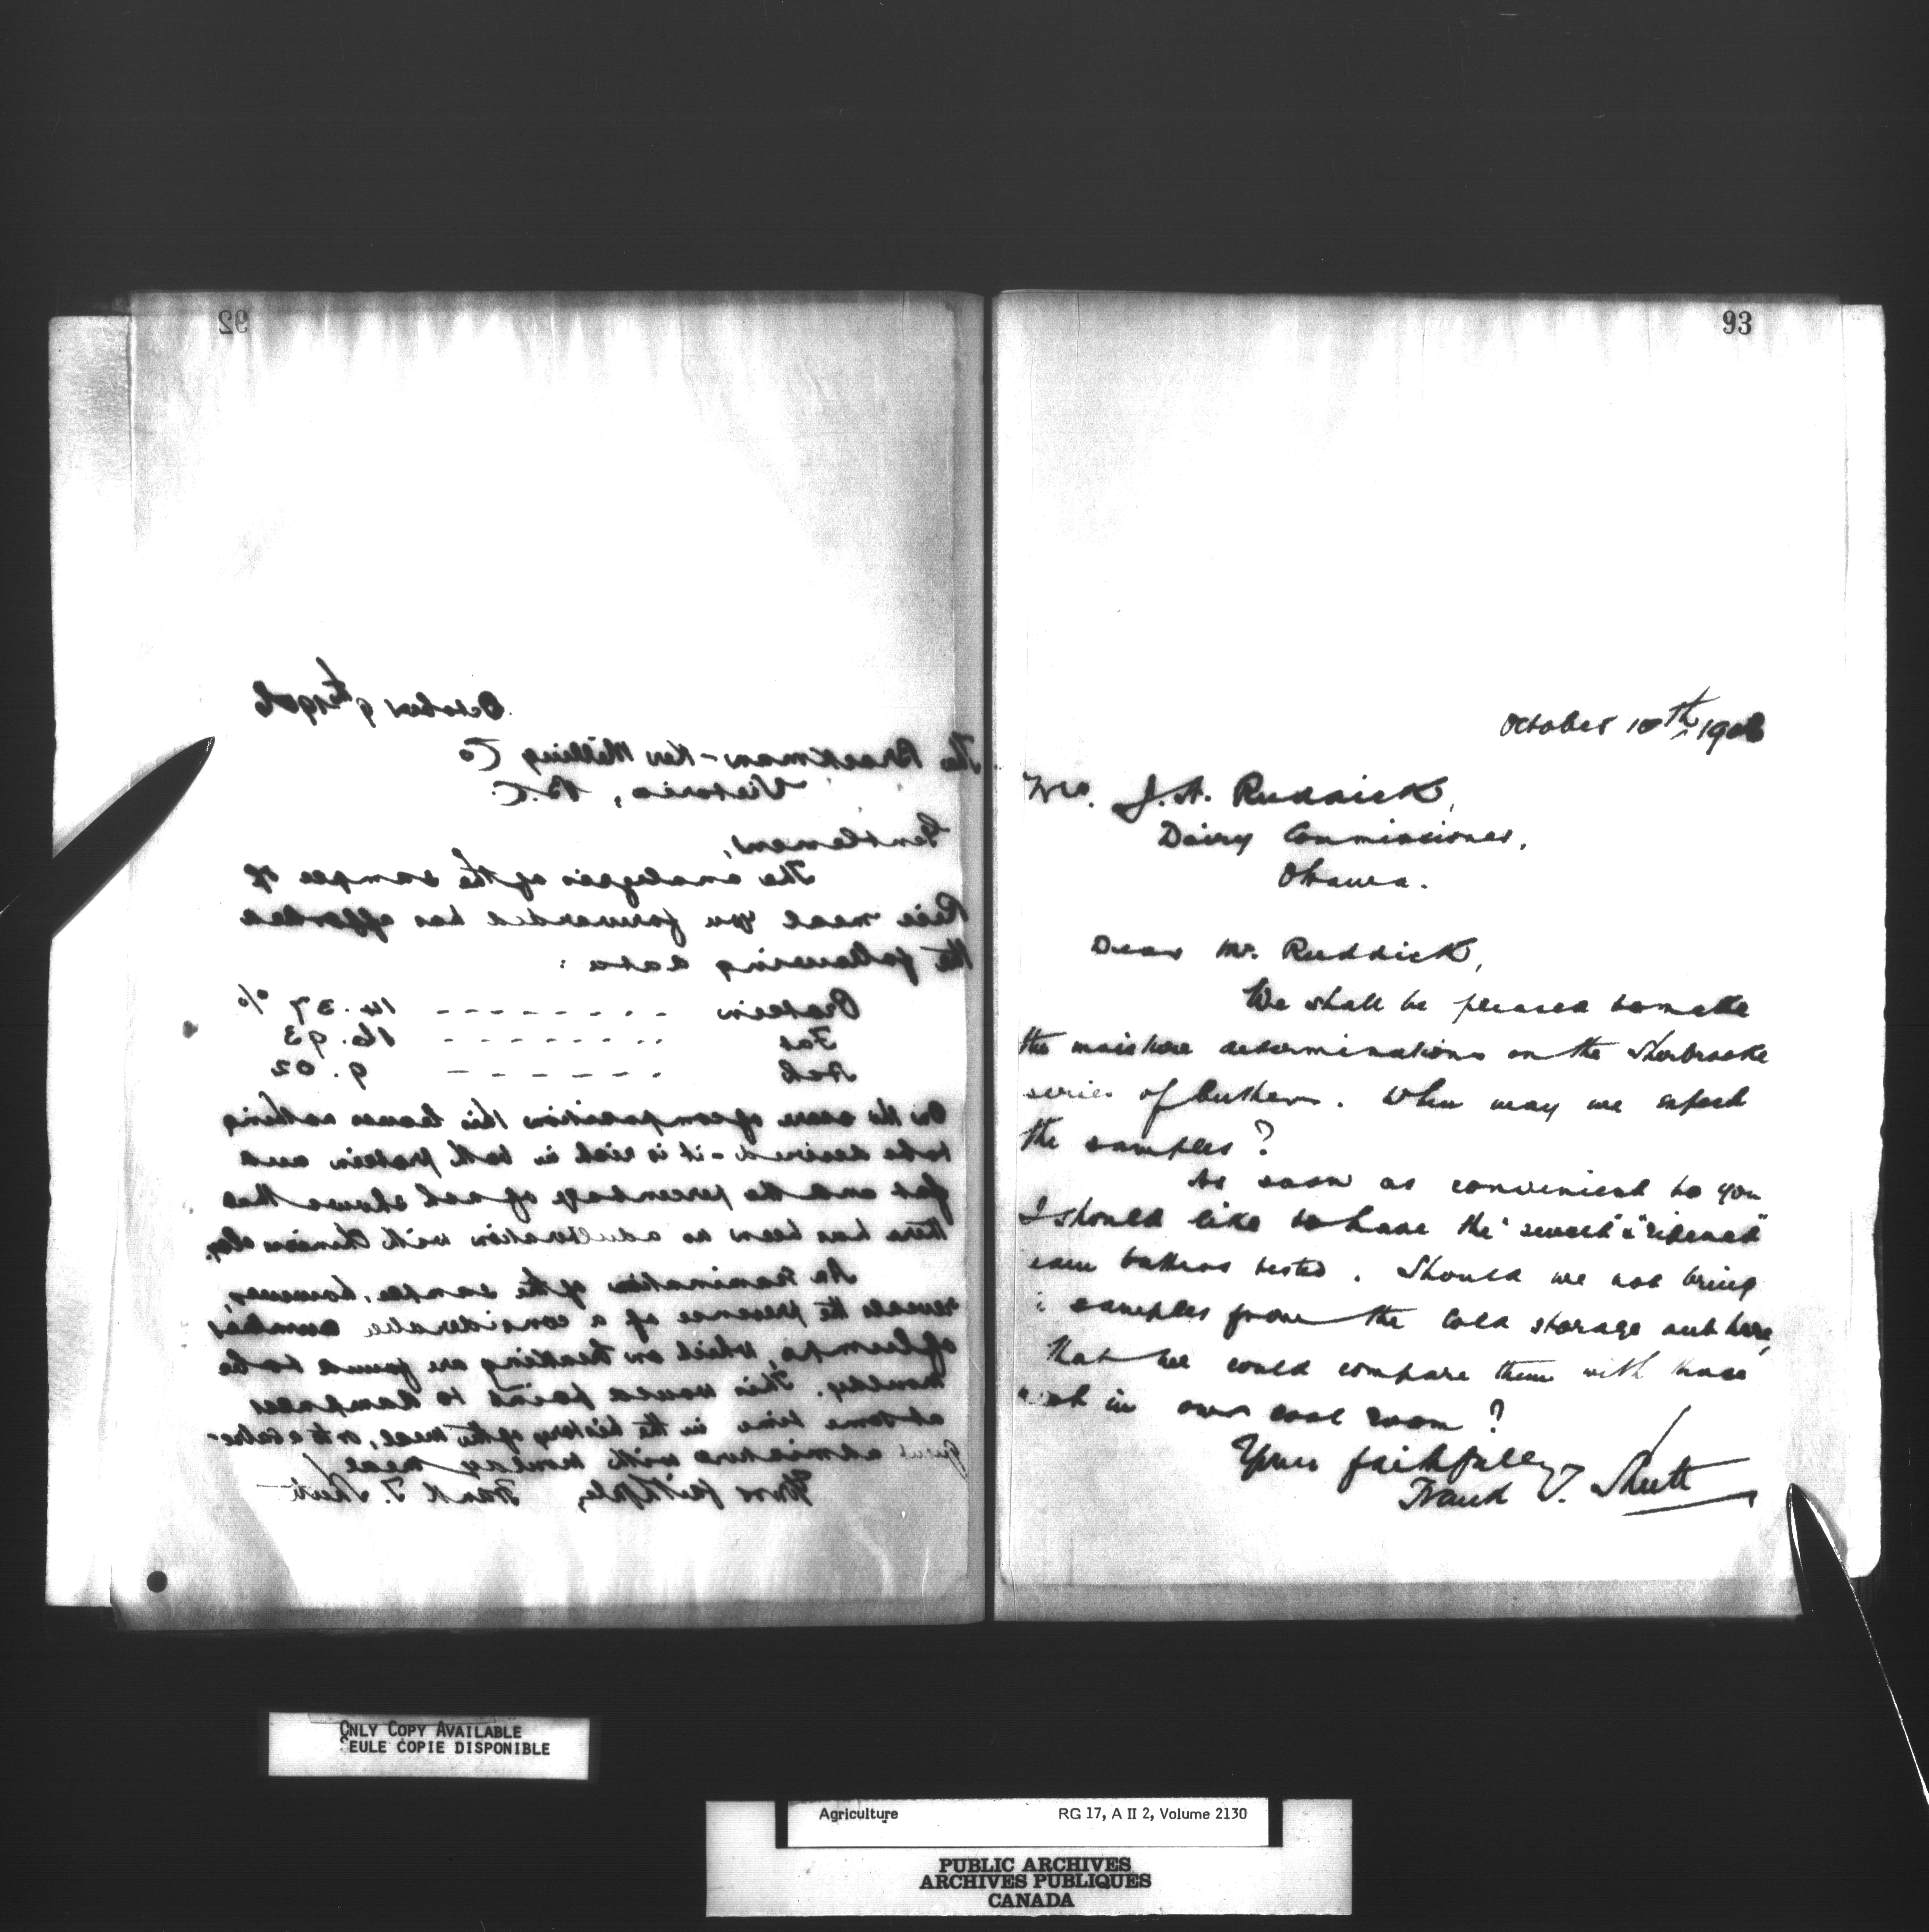 92
October 9th 1906
The Brackman-Ker Milling Co
Victoria, B.C.
Gentlemen,
The analysis of the sample of
Rice meal you forwarded has afforded
the following data :
Protein - - - - - - - - 14.37 %
Fat - - - - - - - - 16.93
Ash - - - - - - 9.02
On the score of composition this leaves nothing
to be desired - it is rich in both protein and
fat and the percentage of ash shows that
there has been no adulteration with
An examination of the sample, however,
reveals the presence of a considerable number
of lumps, which on breaking are found to be
mouldy. This would point to dampness
at some time in the history of the meal, or to a subse-
quent admixture with mouldy meal
Yours faithfully, Frank T. Shutt
93
October 10th, 1906
Mr. J. A. Ruddick,
Dairy Commissioner,
Ottawa.
Dear Mr. Ruddick,
We shall be pleased to make
the moisture determinations on the Sherbrooke
series of butters. When may we expect
the samples?
As soon as convenient to you
I should like to have the "sweet" & "ripened"
cream butters tested. Should we not bring
samples from the cold storage out here,
that we could compare them with those
in our cool room?
Yours faithfully
Frank T. Shutt
ONLY COPY AVAILABLE
SEULE COPIE DISPONIBLE
Agriculture RG 17, A II 2, Volume 2130
PUBLIC ARCHIVES
ARCHIVES PUBLIQUES
CANADA